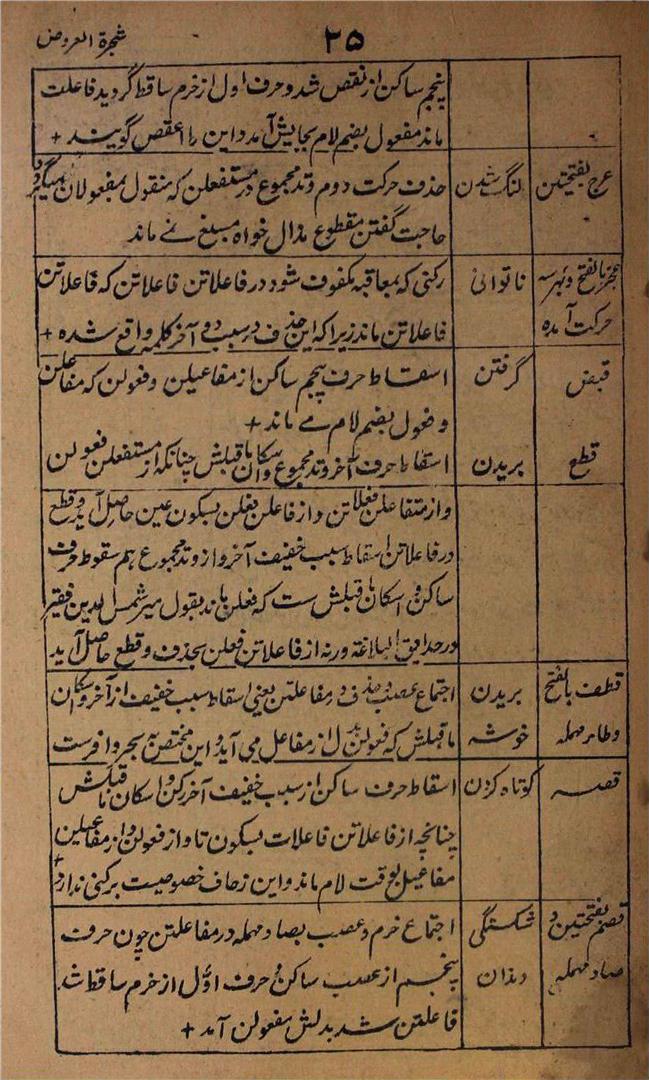 شجرة العروض
۲۵
پنجم ساکن از نقص شد و حرف اول از خرم ساقط گردید فاعلت
ماند مفعول بضم لام بجایش آمد و این را اعقص گویند +
عرج بفتحتین لنگ شدن حذف حرکت دوم وتد مجموع در مستفعلن که منقول بمفعولان میگردد
حاجت گفتن مقطوع مذال خواه مسبغ نے ماند
عجز بالفتح و بهر سه ناتوانی رکنی که بمعاقبه مکفوف شود در فاعلاتن فاعلاتن که فاعلاتن
حرکت آمده فاعلاتن ماند زیرا که این حذف در سبب دوم آخر کلمه واقع شده +
قبض گرفتن اسقاط حرف پنجم ساکن از مفاعیلن و فعولن که مفاعلن
و فعول بضم لام مے ماند +
قطع بریدن اسقاط حرف آخر وتد مجموع و اسکان ماقبلش چنانکه از مستفعلن فعولن
و از متفاعلن فعلاتن و از فاعلن فعلن بسکون عین حاصل آید و قطع
در فاعلاتن اسقاط سبب خفیف آخر و از وتد مجموع هم سقوط حرف
ساکن و اسکان ماقبلش ست که فعلن ماند بقول میر شمس الدین فقیر
در حدایق البلاغة ورنه از فاعلاتن فعلن بحذف و قطع حاصل آید
قطف بالفتح بریدن اجتماع عصب و حذف در مفاعلتن یعنی اسقاط سبب خفیف از آخر و اسکان
و طاء مهمله خوشه ماقبلش که فعولن بدل از مفاعل می آید و این مختص به بحر وافرست
قصر کوتاه کردن اسقاط حرف ساکن از سبب خفیف آخر رکن و اسکان ماقبلش
چنانچه از فاعلاتن فاعلات بسکون تا و از فعولن و از مفاعیلن
مفاعیل بوقف لام ماند و این زحاف خصوصیت برکنی ندارد +
قصم بفتحتین و شکستگی اجتماع خرم و عصب بصاد مهمله در مفاعلتن چون حرف
صاد مهمله دندان پنجم از عصب ساکن و حرف اوّل از خرم ساقط شد
فاعلتن شد بدلش مفعولن آمد +